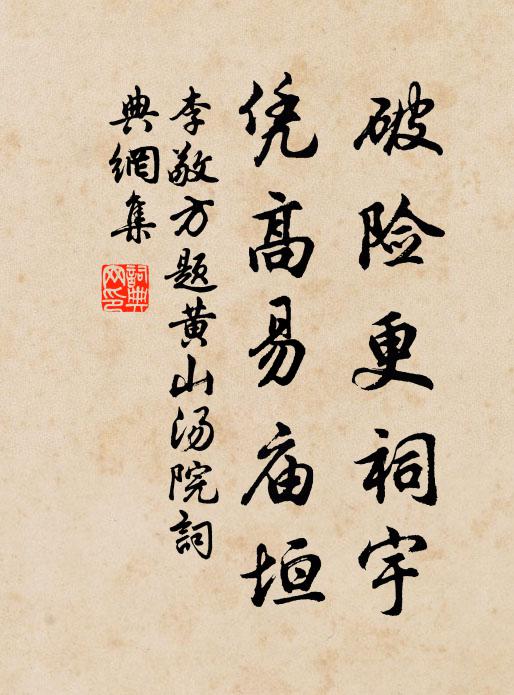 破险更祠宇
凭高易庙垣
李敬方题黄山汤院詞
典網集
詞典网印